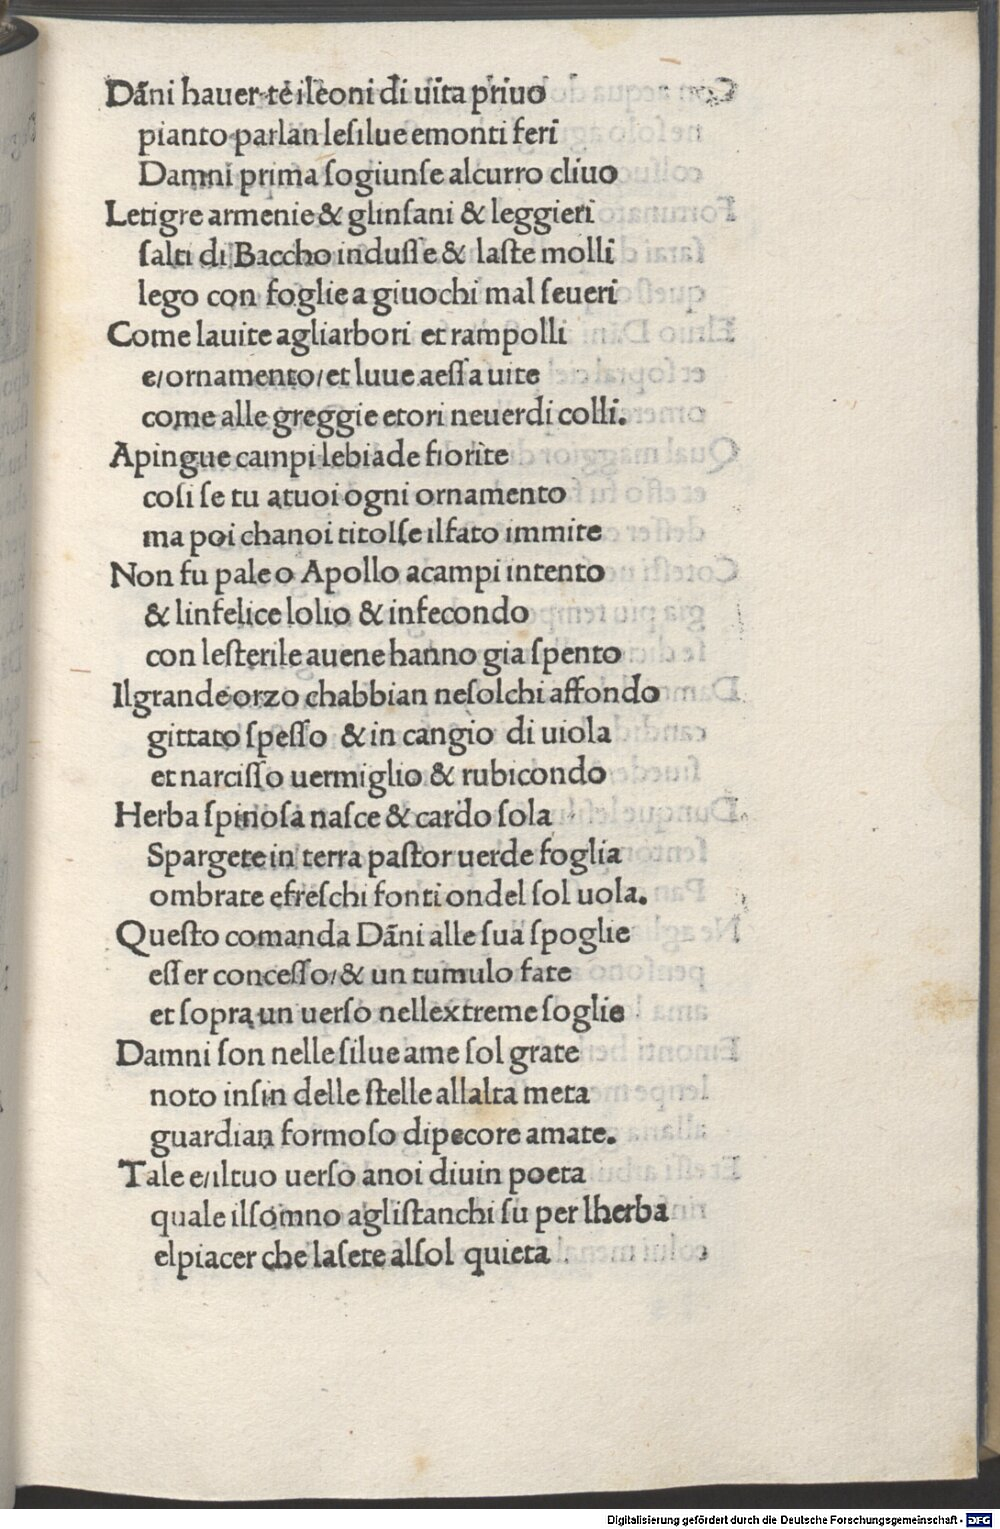 Dãni hauer te ileoni di uita priuo
pianto parlan leſilue emonti feri
Damni prima ſogiunſe alcurro cliuo
Letigre armenie & glinſani & leggieri
ſalti di Baccho induſſe & laſte molli
lego con foglie a giuochi mal ſeueri
Come lauite agliarbori et rampolli
e/ornamento/et luue aeſſa uite
come alle greggie etori neuerdi colli.
Apingue campi lebiade fiorite
coſi ſe tu atuoi ogni ornamento
ma poi chanoi titolſe ilfato immite
Non fu pale o Apollo acampi intento
& linfelice lolio & infecondo
con leſterile auene hanno gia ſpento
Ilgrande orzo chabbian neſolchi affondo
gittato ſpeſſo & in cangio di uiola
et narciſſo uermiglio & rubicondo
Herba ſpinoſa naſce & cardo ſola
Spargete in terra paſtor uerde foglia
ombrate efreſchi fonti ondel ſol uola.
Queſto comanda Dãni alle ſua ſpoglie
eſſer conceſſo/& un tumulo fate
et ſopra un uerſo nellextreme ſoglie
Damni ſon nelle ſilue ame ſol grate
noto inſin delle ſtelle allalta meta
guardian formoſo dipecore amate.
Tale e/iltuo uerſo anoi diuin poeta
quale ilſomno agliſtanchi ſu per lherba
elpiacer che laſete alſol quieta
Digitalisierung gefördert durch die Deutsche Forschungsgemeinschaft - DFG